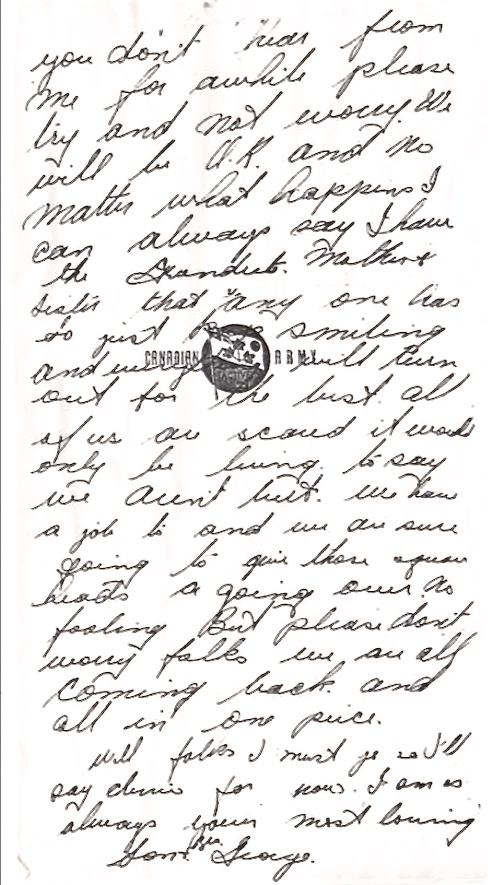 you don't hear from
me for awhile please
try and not worry. We
will be O.K. and no
matter what happens I
can always say I have
the Grandest. Mother &
sister that any one has
so just smiling
CANADIAN ARMY
and will turn
out for the best. all
of us are scared it would
only be lying to say
we arent but. we have
a job to and we are sure
going to give those square
heads a going over no
fooling But please don't
worry folks we are all
coming back. and
all in one piece.
Well folks I must go so I'll
say cherio for now. I am as
always your most loving
Son & Bro. George.